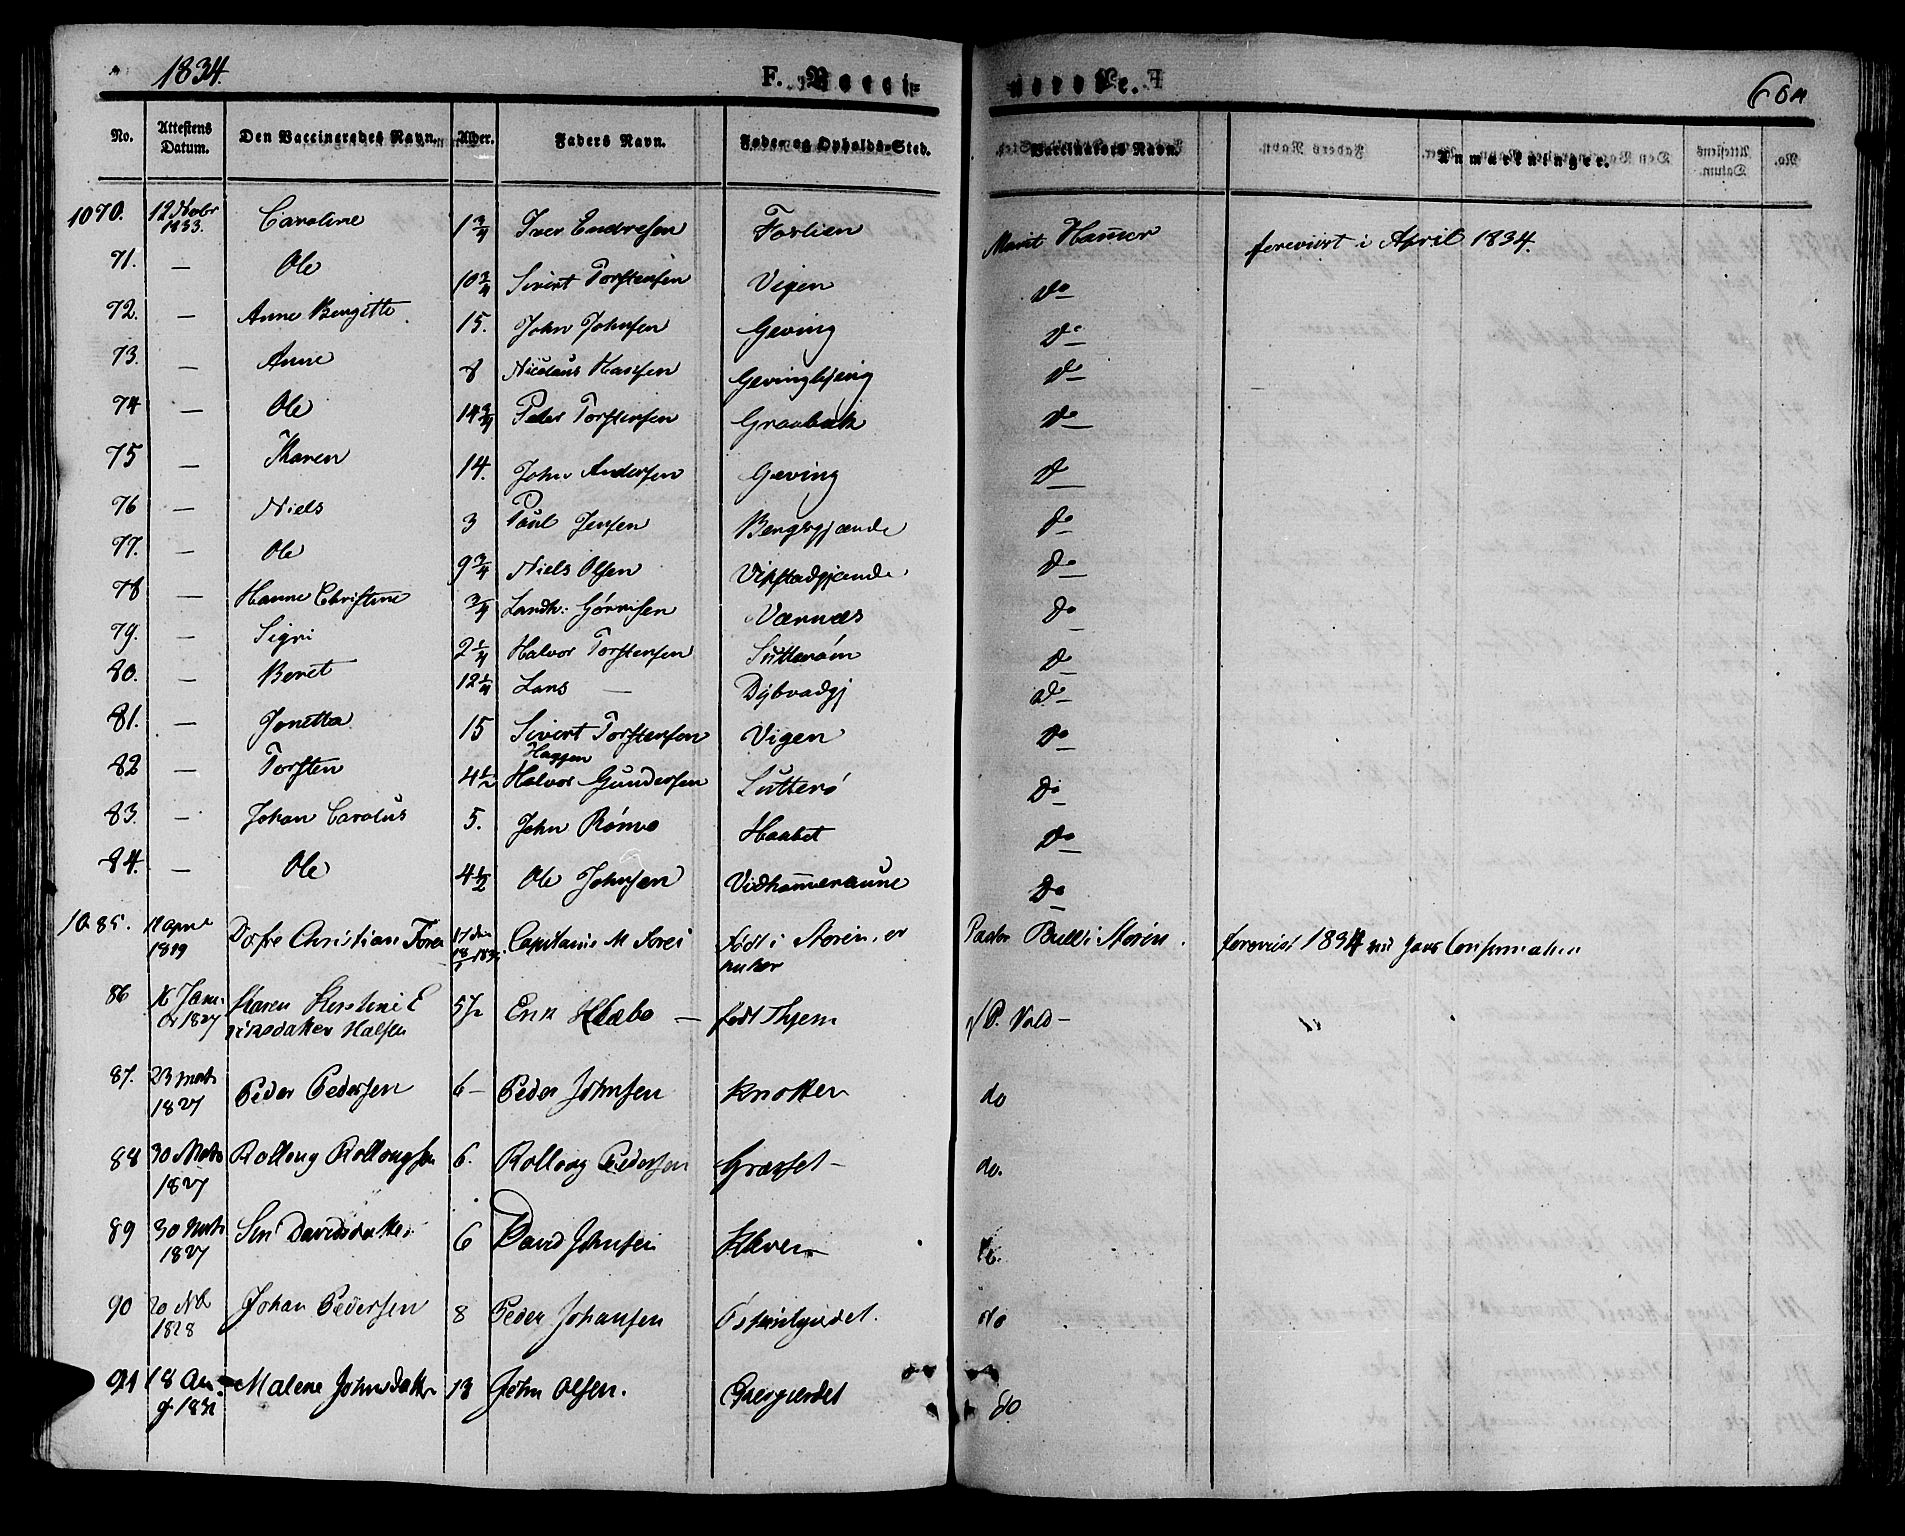 1834.
F. Vacci-
nerede.
No. Attestens Datum. Den Vaccineredes Navn. Alder. Faders Navn. Føde- og Opholds-Sted. Vaccinateurs Navn. Anmærkninger.
1070. 12 Novbr 1833. Caroline 1 3/4 Iver Endresen Foslien Marit Hamer foreviist i April 1834.
71. — Ole 10 3/4 Sivert Torstensen Vigen Do
72. — Anne Bergitte 15. John Johnsen Geving Do
73. — Anne 8 Nicolaus Hansen Gevingbjerg Do
74 — Ole 14 3/4 Peder Torstensen Graabæk Do
75 — Karen 14. John Andersen Geving Do
76 — Niels 3 Paul Jensen Bergsgjænde Do
77. — Ole 9 3/4 Niels Olsen Vipstadgjænde Do
78 — Hanne Christine 3/4 Landh: Gørrisen Værnæs Do
79. — Sigri 2 1/4 Halvor Torstensen Sutterøm Do
80. — Beret 12 1/4 Lars — Dybvadgj Do
81. — Jonetta 15 Sivert Torstensen Vigen Do
82 — Torsten 4 1/2 Haggen Halvor Gundersen Sutterø Do
83. — Johan Carolus 5. John Rømo Haabet Do
84. — Ole 4 1/2 Ole Johnsen Vidhammeraune Do
1085. 1819 Christian Capitaine M født i Støren, er Pastor Bull i Støren. forevist 1834 ved hans Confirmation
86 16 Jan 1827 Karen Kirstine E 5 1/2 Erik Klæbo — født Thjem P. Vold —
87. 23 1827 Peder Pedersen 6 — Peder Johnsen Knotten do
88 30 1827 Rolloug Rollougsen 6. Rolloug Pedersen Græsset — do.
89 30 1827 Siri Davidsdatter 6 David Johnsen Kleven do.
90 20 1828 Johan Pedersen 8 Peder Johansen do
91 18 Malene Johnsdatter 13 John Olsen. do.